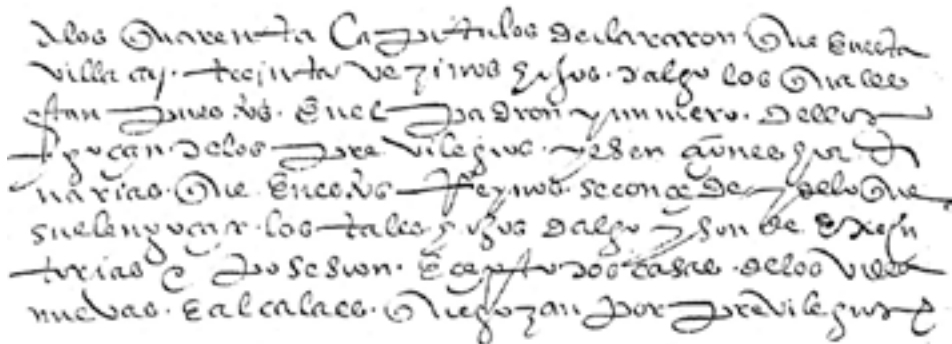 a los quarenta Capitulos Declararon que en esta
villa ay. treinta vezinos hijos. dalgo los quales
estan puestos. En el padron y numero. Dellos
y goçan de los previlegios. y esençiones hordi
narias. que. En estos Reynos. se conçeden y de lo que
suelen goçar. los tales hijos dalgo y son de Executorias e posesion. Eçepto dos casas. de los villa
nuevas. e alcalaes. que gozan por previlegios e